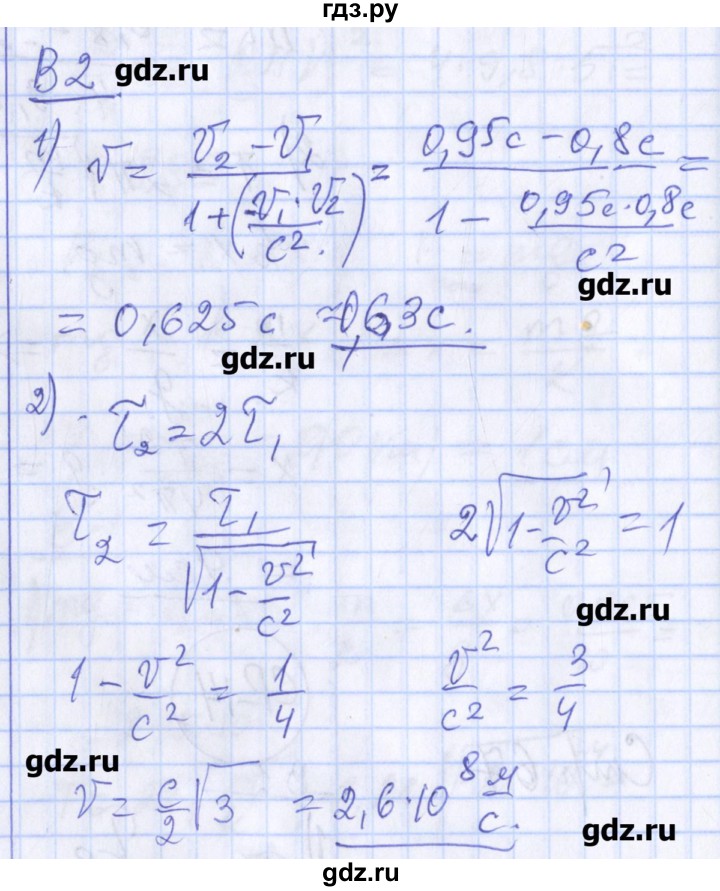 гдз.ру
В2
gdz.ru
1) v = (v₂ - v₁) / (1 + (-v₁·v₂ / c².)) = (0,95c - 0,8c) / (1 - 0,95c·0,8c / c²) =
gdz.ru
= 0,625c ≈ 0,63c.
gdz.ru
2) τ₂ = 2τ₁
τ₂ = τ₁ / √(1 - v²/c²)    2√(1 - v²/c²) = 1
gdz.ru
1 - v²/c² = 1/4    v²/c² = 3/4
gdz.ru
v = c/2 √3 = 2,6·10⁸ м/с.
gdz.ru
gdz.ru